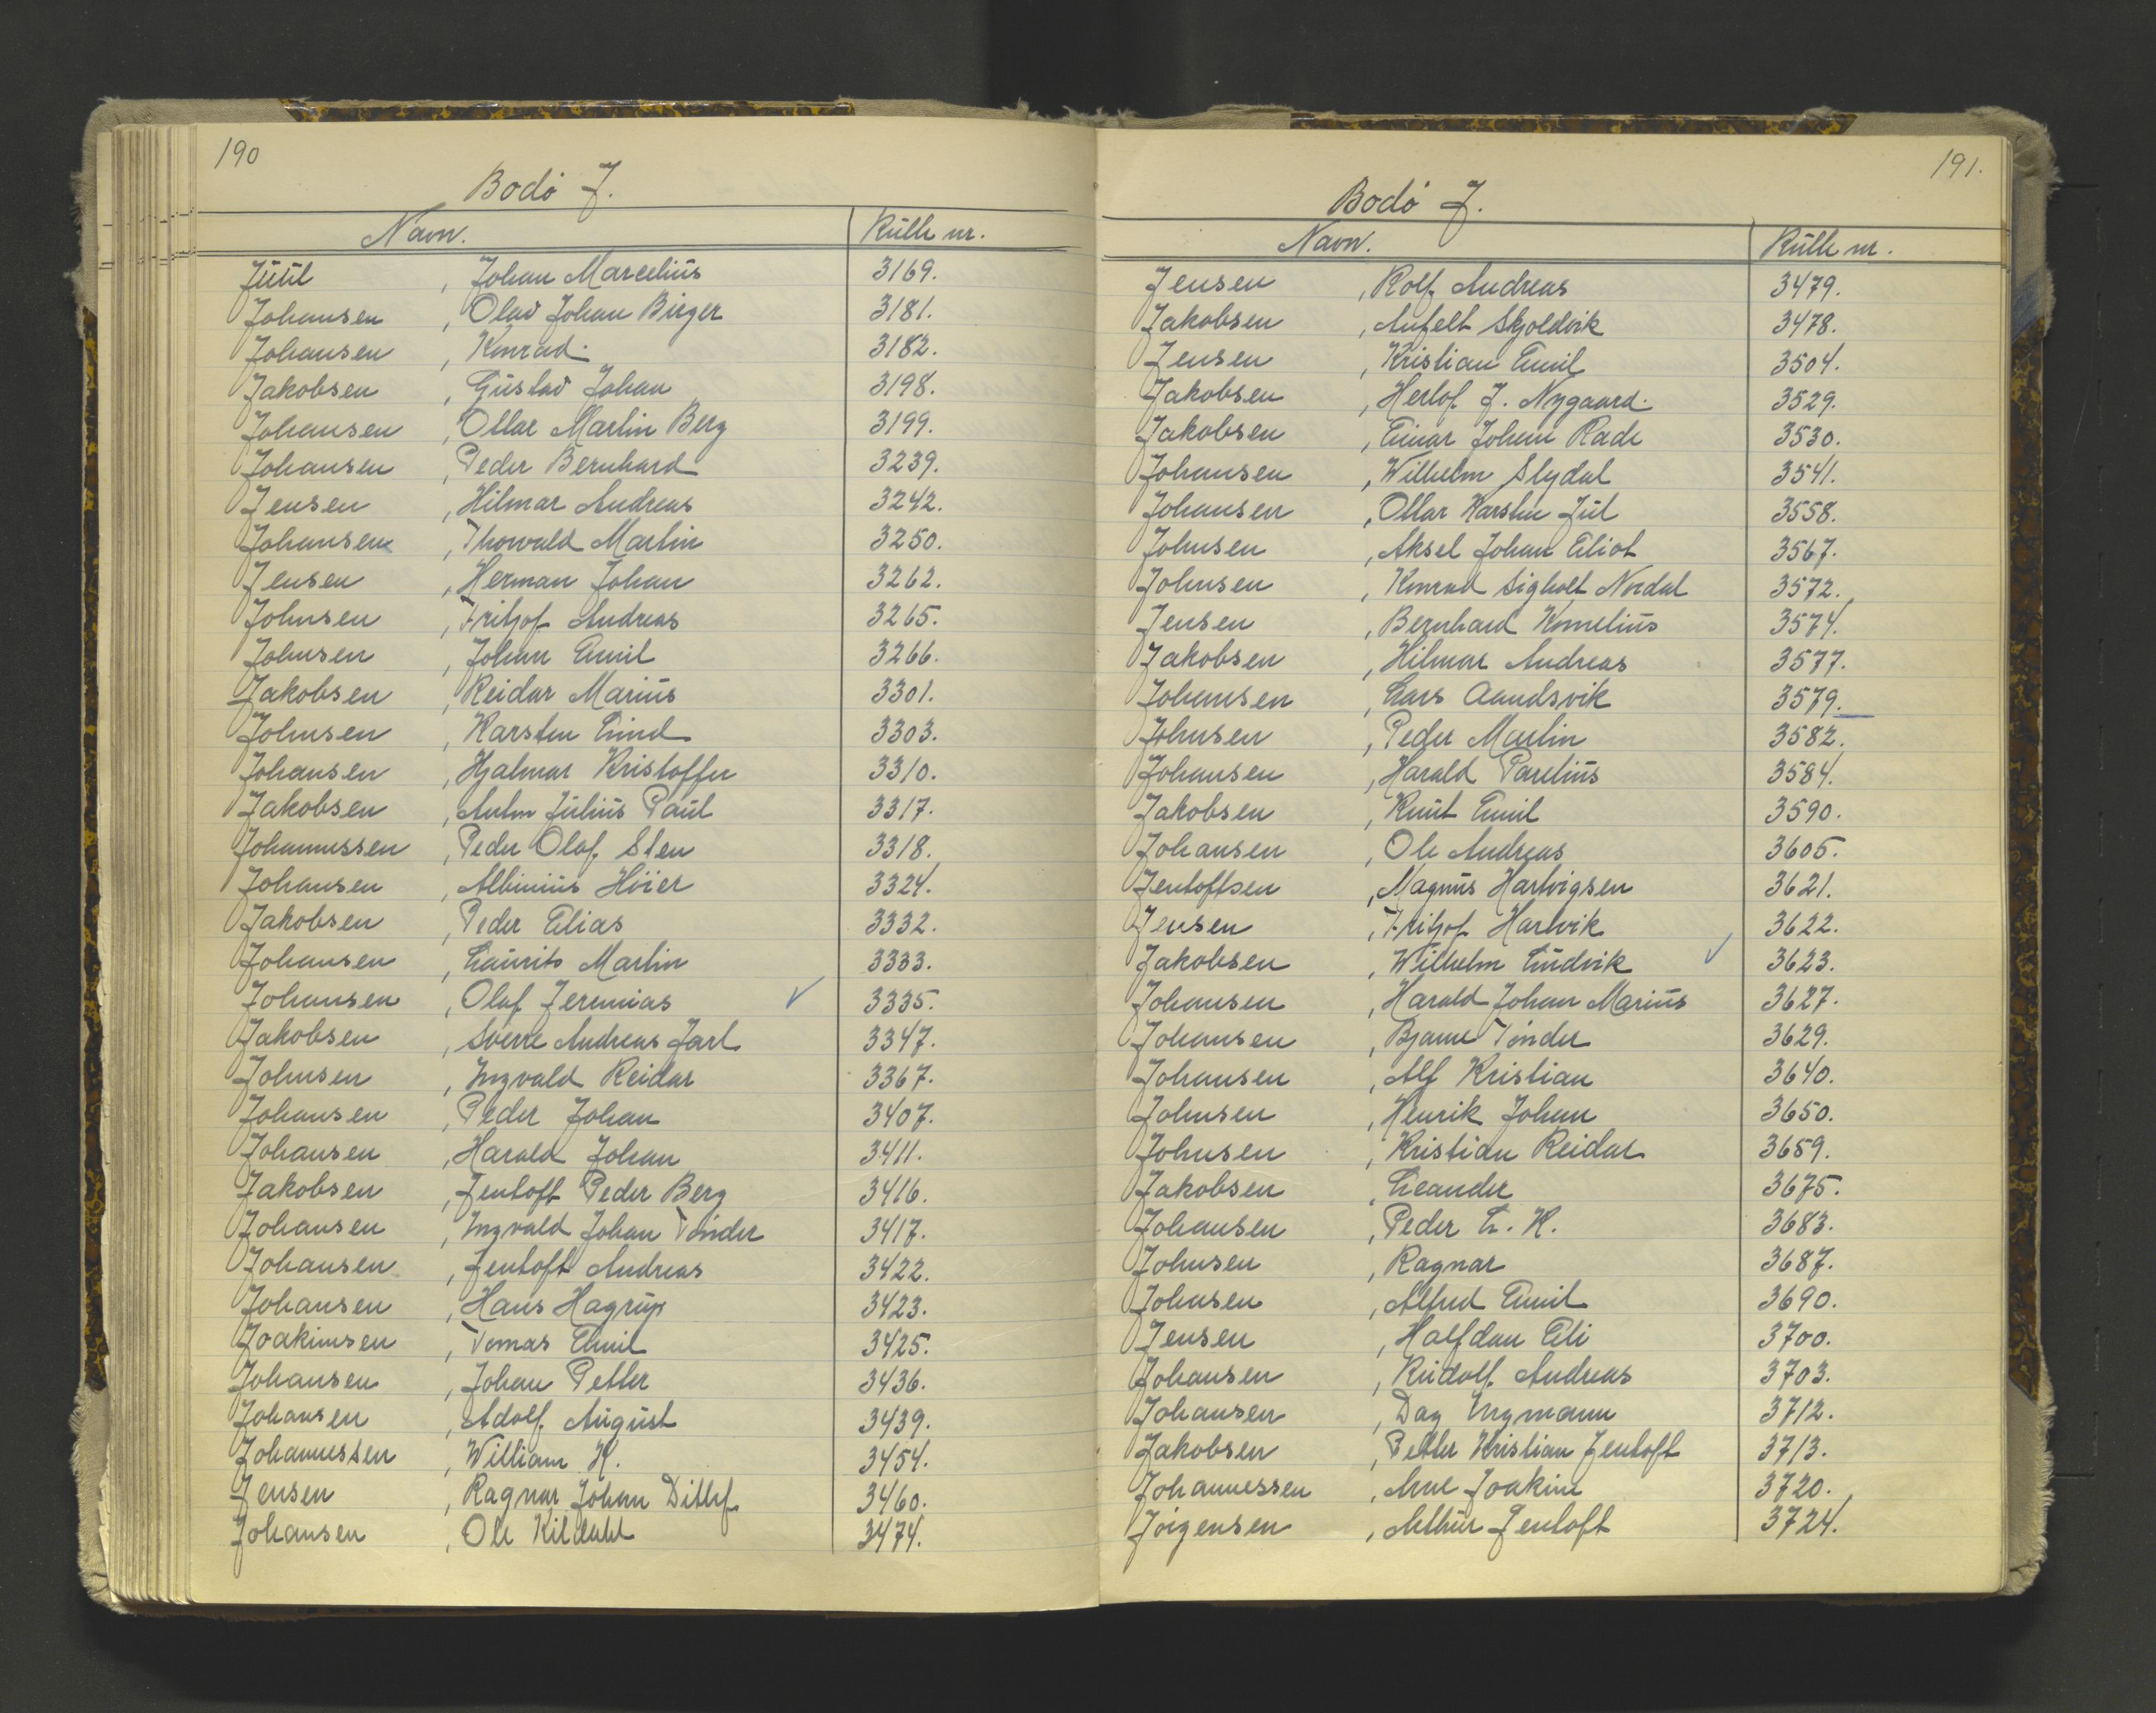 190
Bodø J.
Navn. Rulle nr.
Juul, Johan Marcelius 3169.
Johansen, Olav Johan Birger 3181.
Johansen, Konrad. 3182.
Jakobsen, Gustav Johan 3198.
Johansen, Ottar Martin Berg 3199.
Johansen, Peder Bernhard 3239.
Jensen, Hilmar Andreas 3242.
Johansen, Thorvald Martin 3250.
Jensen, Herman Johan 3262.
Johnsen, Fritjof Andreas 3265.
Johnsen, Johan Emil 3266.
Jakobsen, Reidar Marius 3301.
Johnsen, Karsten Lind 3303.
Johansen, Hjalmar Kristoffer 3310.
Jakobsen, Anton Julius Paul 3317.
Johannessen, Peder Olaf Sten 3318.
Johansen, Albinius Höier 3324.
Jakobsen, Peder Elias 3332.
Johansen, Laurits Martin 3333.
Johansen, Olaf Jeremias ✓ 3335.
Jakobsen, Sverre Andreas Jarl 3347.
Johnsen, Ingvald Reidar 3367.
Johansen, Peder Johan 3407.
Johansen, Harald Johan 3411.
Jakobsen, Jentoft Peder Berg 3416.
Johansen, Ingvald Johan Tönder 3417.
Johansen, Jentoft Andreas 3422.
Johansen, Hans Hagrup 3423.
Joakimsen, Tomas Emil 3425.
Johansen, Johan Petter 3436.
Johansen, Adolf August 3439.
Johannessen, William K. 3454.
Jensen, Ragnar Johan Ditlef 3460.
Johansen, Ole Kildahl 3474.
191.
Bodø J.
Navn. Rulle nr.
Jensen, Rolf Andreas 3479.
Jakobsen, Anfelt Skjoldvik 3478.
Jensen, Kristian Emil 3504.
Jakobsen, Herlof J. Nygaard. 3529.
Jakobsen, Einar Johan Rade 3530.
Johansen, Wilhelm Slydal 3541.
Johansen, Ottar Karsten Jul 3558.
Johnsen, Aksel Johan Eliot 3567.
Johnsen, Konrad Sigholt Nordal 3572.
Jensen, Bernhard Kornelius 3574.
Jakobsen, Hilmar Andreas 3577.
Johansen, Lars Aandsvik 3579.
Johnsen, Peder Martin 3582.
Johansen, Harald Parelius 3584.
Jakobsen, Knut Emil 3590.
Johansen, Ole Andreas 3605.
Jentoftsen, Magnus Hartvigsen 3621.
Jensen, Fritjof Hartvik 3622.
Jakobsen, Wilhelm Ludvik ✓ 3623.
Johansen, Harald Johan Marius 3627.
Johansen, Bjarne Tönder 3629.
Johansen, Alf Kristian 3640.
Johnsen, Henrik Johan 3650.
Johnsen, Kristian Reidar 3659.
Jakobsen, Leander 3675.
Johansen, Peder L. K. 3683.
Johnsen, Ragnar 3687.
Johnsen, Alfred Emil 3690.
Jensen, Halfdan Eli 3700.
Johansen, Rudolf Andreas 3703.
Johansen, Dag Ingmann 3712.
Jakobsen, Petter Kristian Jentoft 3713.
Johannessen, Arne Joakim 3720.
Jörgensen, Arthur Jentoft 3724.